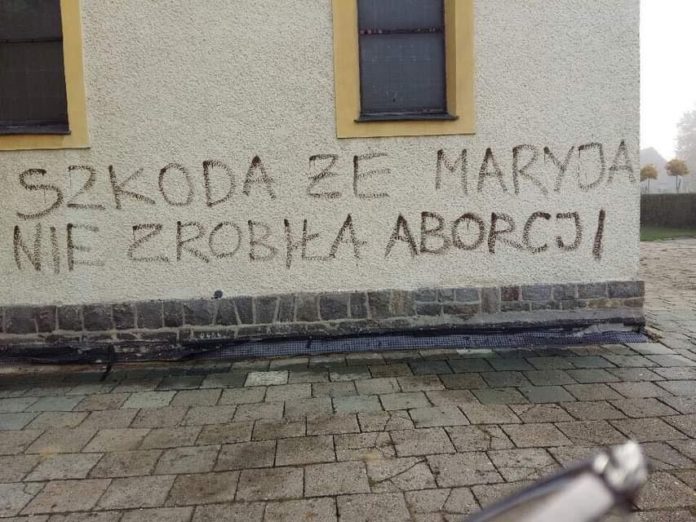 SZKODA ZE MARYJA
NIE ZROBIŁA ABORCJI